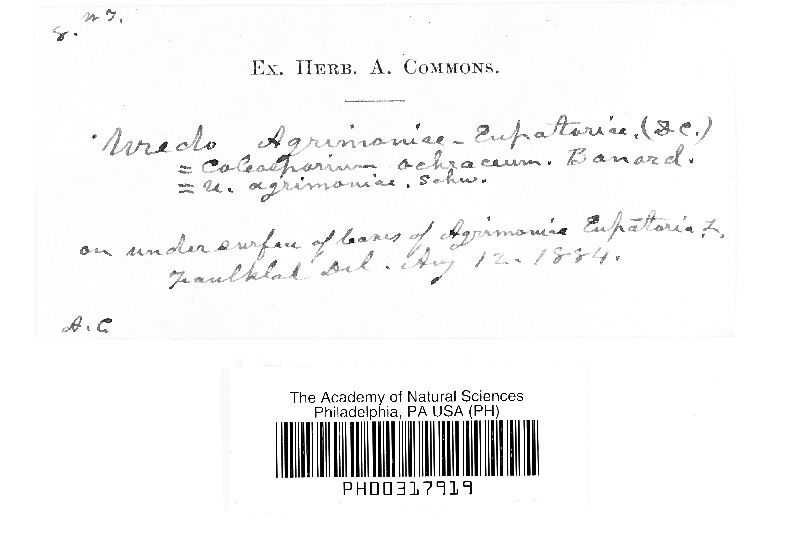 Ex. Herb. A. Commons.
Uredo Agrimoniae-Eupatoriae, (DC.)
= Coleosporium ochraceum. Bonord.
= U. agrimoniae. Schw.
on under surface of leaves of Agrimonia Eupatoria, L.
Faulkland Del. Aug 12. 1884.
A.C
The Academy of Natural Sciences
Philadelphia, PA USA (PH)
PH00317919